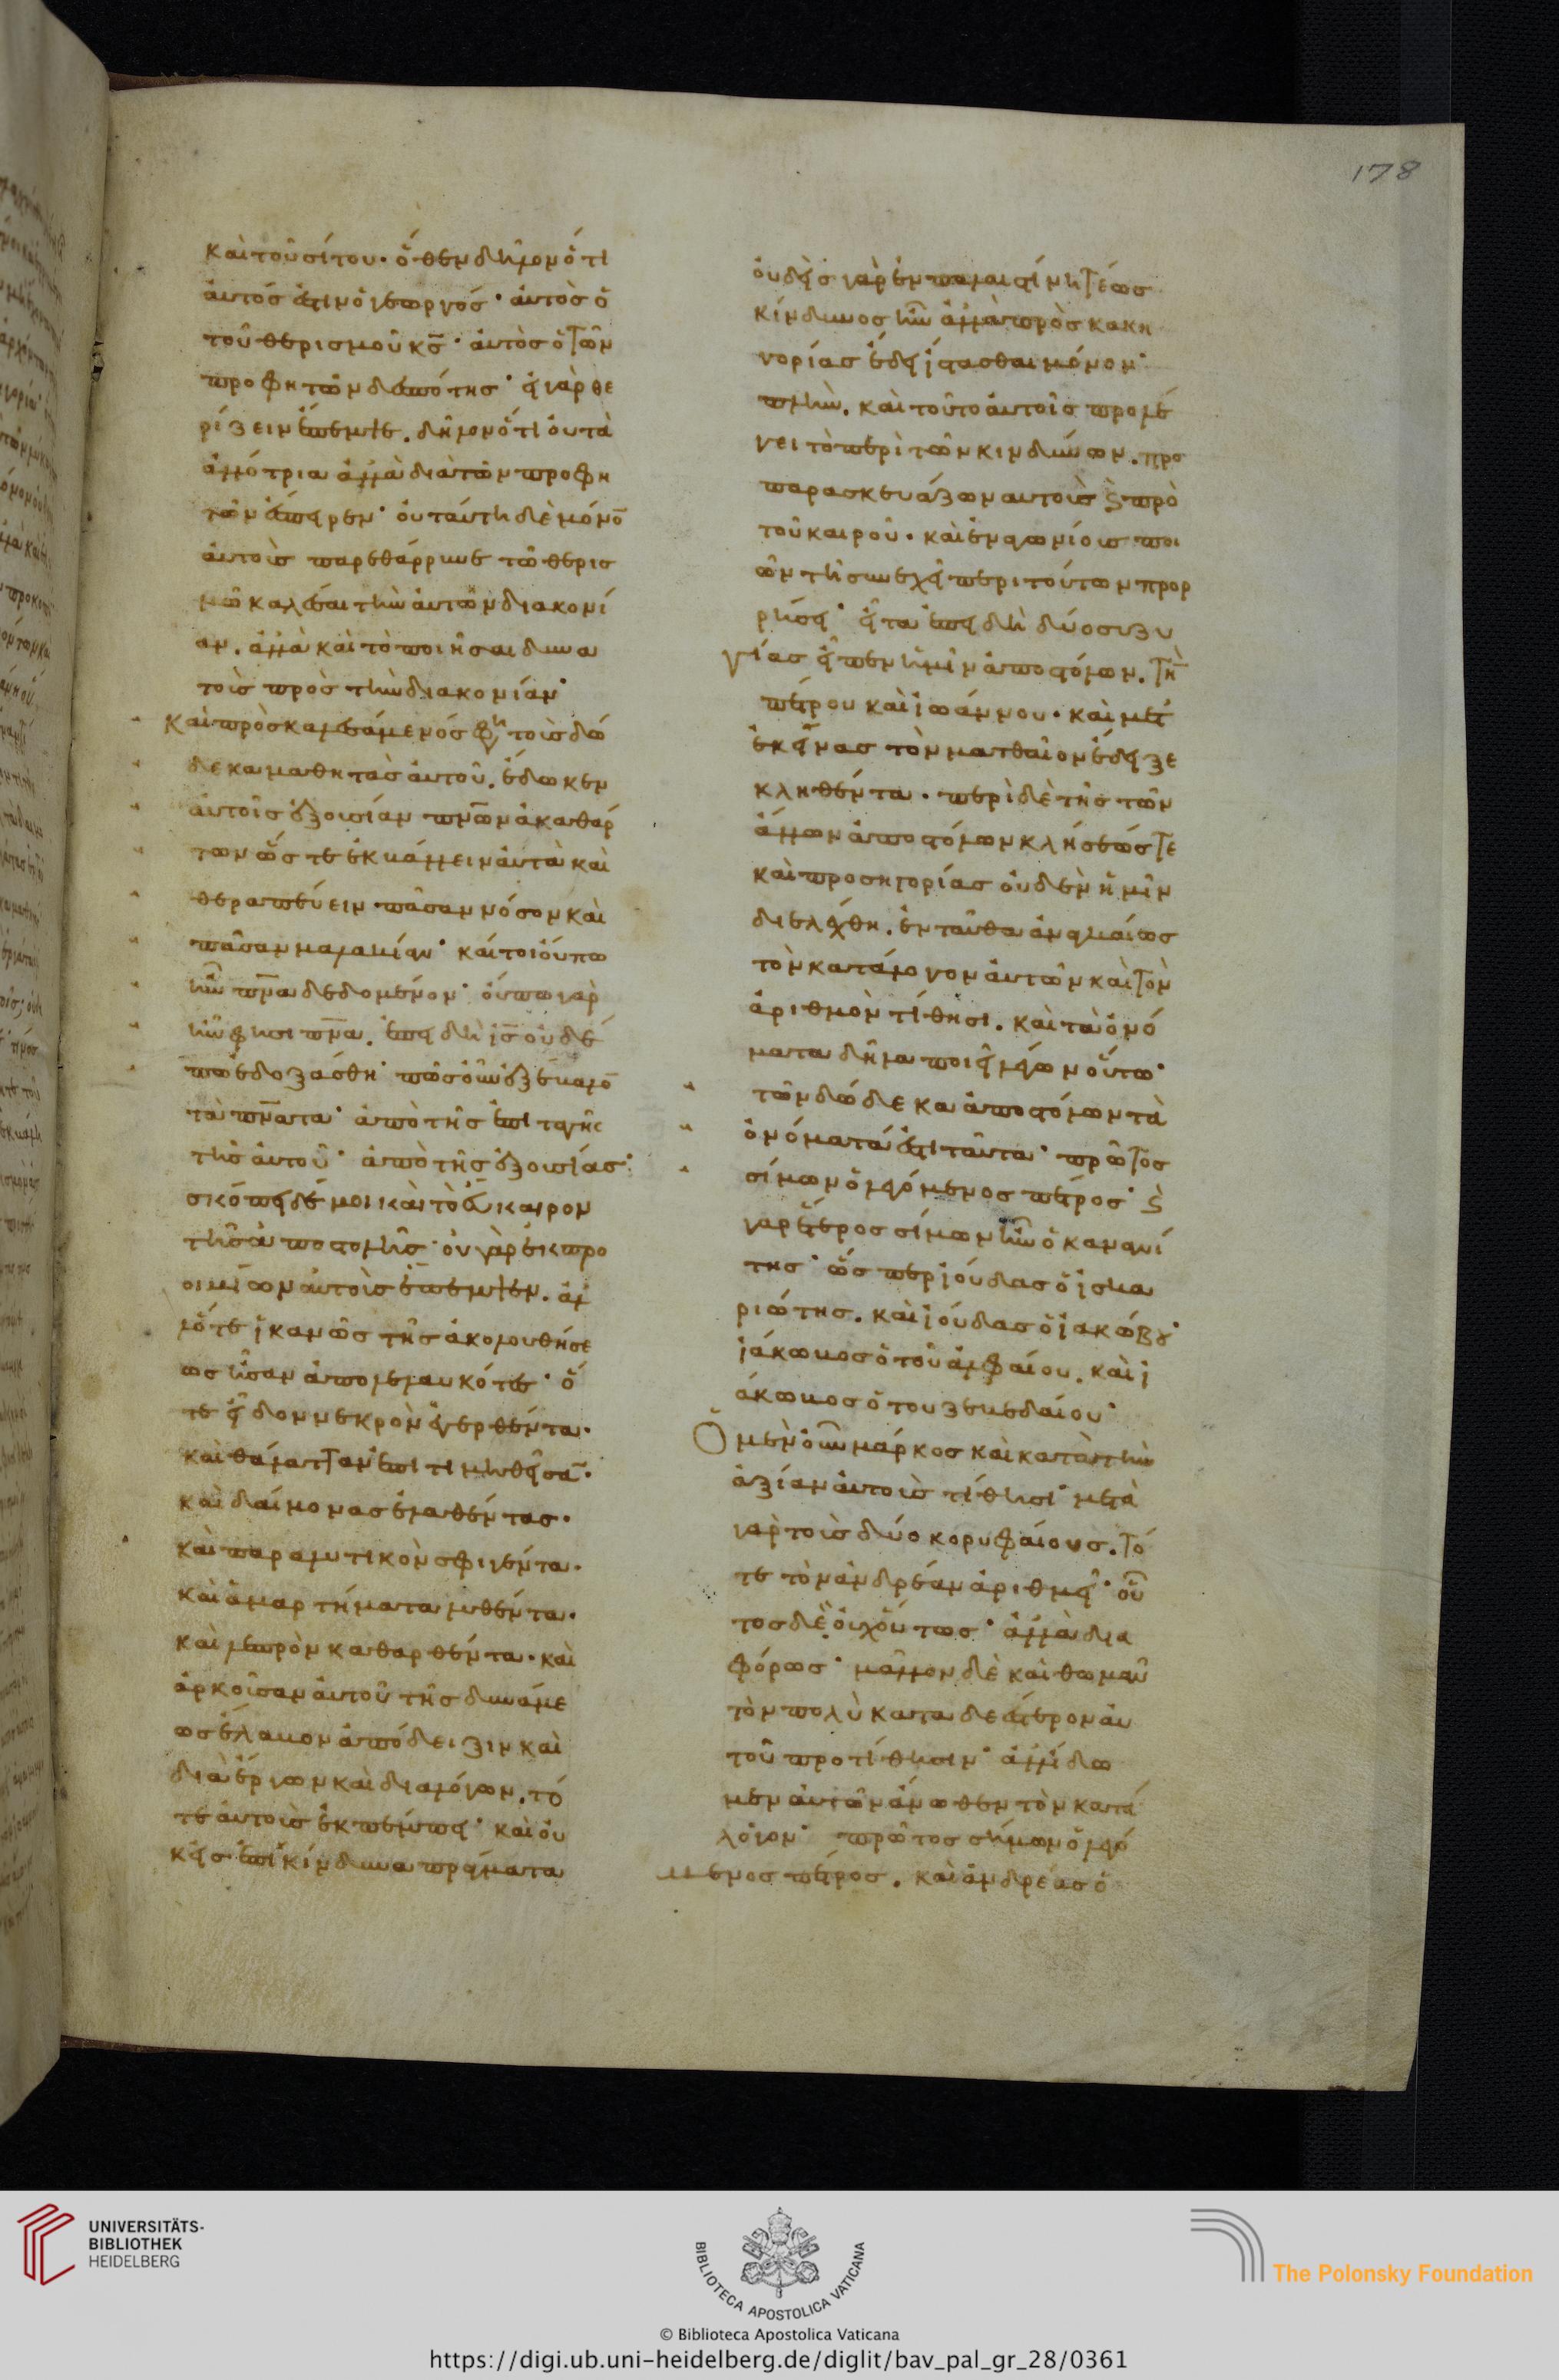 καὶ τοῦ σίτου. ὅθεν δῆλον ὅτι
αὐτός ἐστιν ὁ γεωργός· αὐτὸς ὁ
τοῦ θερισμοῦ κ̅ς̅· αὐτὸς ὁ τῶν
προφητῶν δεσπότης· εἰ γὰρ θε
ρίζειν ἔπεμπε. δῆλον ὅτι οὐ τὰ
ἀλλότρια ἀλλὰ διὰ τῶν προφη
τῶν ἔσπειρεν· οὐ ταύτη δὲ μόνο̅
αὐτοὺς παρεθάρρυνε τῶ θερισ
μῶ καλέσαι τὴν αὐτῶν διακονί
αν. ἀλλὰ καὶ τὸ ποιῆσαι δυνα
τοὺς πρὸς τὴν διακονίαν·
Καὶ προσκαλεσάμενός φη τοὺς δώ
δεκα μαθητὰς αὐτοῦ. ἔδωκεν
αὐτοῖς ἐξουσίαν π̅ν̅ω̅ν ἀκαθάρ
των ὥστε ἐκβάλλειν αὐτὰ καὶ
θεραπεύειν πᾶσαν νόσον καὶ
πᾶσαν μαλακίαν· καίτοι οὔπω
ἦν π̅ν̅α̅ δεδομένον· οὔπω γὰρ
ἦν φησι π̅ν̅α̅. ἐπειδὴ ι̅ς̅ οὐδέ
πω ἐδοξάσθη· πῶς οὖν ἐξέβαλο̅
τὰ π̅ν̅α̅τα· ἀπὸ τῆς ἐπιταγῆς
τῆς αὐτοῦ· ἀπὸ τῆς ἐξουσίας·
σκόπει δέ μοι καὶ τὸ εὔκαιρον
τῆς ἀποστολῆς· οὐ γὰρ ἐκ προ
οιμίων αὐτοὺς ἔπεμπεν. ἀλ
λ' ὅτε ἱκανῶς τῆς ἀκολουθήσε
ως ἦσαν ἀπολελαυκότες· ὅ
τε εἶδον νεκρὸν ἐγερθέντα.
καὶ θάλατταν ἐπιτιμηθεῖσα̅.
καὶ δαίμονας ἐλαθέντας.
καὶ παραλυτικὸν σφιγέντα.
καὶ ἁμαρτήματα λυθέντα.
καὶ λεπρὸν καθαρθέντα. καὶ
ἀρκοῦσαν αὐτοῦ τῆς δυνάμε
ως ἔλαβον ἀπόδειξιν καὶ
διὰ ἔργων καὶ διὰ λόγων. τό
τε αὐτοὺς ἐκπέμπει· καὶ οὐ
κ εἰς ἐπικίνδυνα πράγματα
οὐδεὶς γὰρ ἐν παλαιστίνη τέως
κίνδυνος ἦν ἀλλὰ πρὸς κακη
γορίας ἔδει ἵστασθαι μόνον·
πλὴν. καὶ τοῦτο αὐτοῖς προλέ
γει τὸ περὶ τῶν κινδύνων. προ
παρασκευάζων αὐτοὺς ϗ πρὸ
τοῦ καιροῦ. καὶ ἐναγωνίους ποι
ῶν τῆ συνεχεῖ περὶ τούτων προρ
ρήσει· εἶτα ἐπειδὴ δύο συζυ
γίας εἶπεν ἡμῖν ἀποστόλων. τὴν
πέτρου καὶ ἰωάννου. καὶ μετ'
ἐκείνας τὸν ματθαῖον ἔδειξε
κληθέντα. περὶ δὲ τῆς τῶν
ἄλλων ἀποστόλων κλήσεώς τε
καὶ προσηγορίας οὐδὲν ἡμῖν
διελέχθη. ἐνταῦθα ἀναγκαίως
τὸν κατάλογον αὐτῶν καὶ τὸν
ἀριθμὸν τίθησι. καὶ τὰ ὀνό
ματα δῆλα ποιεῖ λέγων οὕτω·
τῶν δώδεκα ἀποστόλων τὰ
ὀνόματά ἐστι ταῦτα· πρῶτος
σίμων ὁ λεγόμενος πέτρος· ϗ
γὰρ ἕτερος σίμων ἦν ὁ κανανί
της· ὥσπερ ἰούδας ὁ ἰσκα
ριώτης. καὶ ἰούδας ὁ ἰακώβου·
ἰάκωβος ὁ τοῦ ἀλφαίου. καὶ ἰ
άκωβος ὁ του ζεβεδαίου·
Ὁ μὲν οὖν μάρκος καὶ κατὰ τὴν
ἀξίαν αὐτοὺς τίθησι· μετὰ
γὰρ τοὺς δύο κορυφαίους. τό
τε τὸν ἀνδρέαν ἀριθμεῖ· οὗ
τος δὲ οὐχ οὕτως· ἀλλὰ δια
φόρως· μᾶλλον δὲ καὶ θωμᾶν
τὸν πολὺ καταδεέστερον αὐ
τοῦ προτίθησιν· ἀλλ' ἴδω
μεν αὐτῶν ἄνωθεν τὸν κατά
λογον· πρῶτος σίμων ὁ λεγό
μενος πέτρος. καὶ ἀνδρέας ὁ
178
UNIVERSITÄTS-
BIBLIOTHEK
HEIDELBERG
BIBLIOTECA APOSTOLICA VATICANA
The Polonsky Foundation
© Biblioteca Apostolica Vaticana
https://digi.ub.uni-heidelberg.de/diglit/bav_pal_gr_28/0361